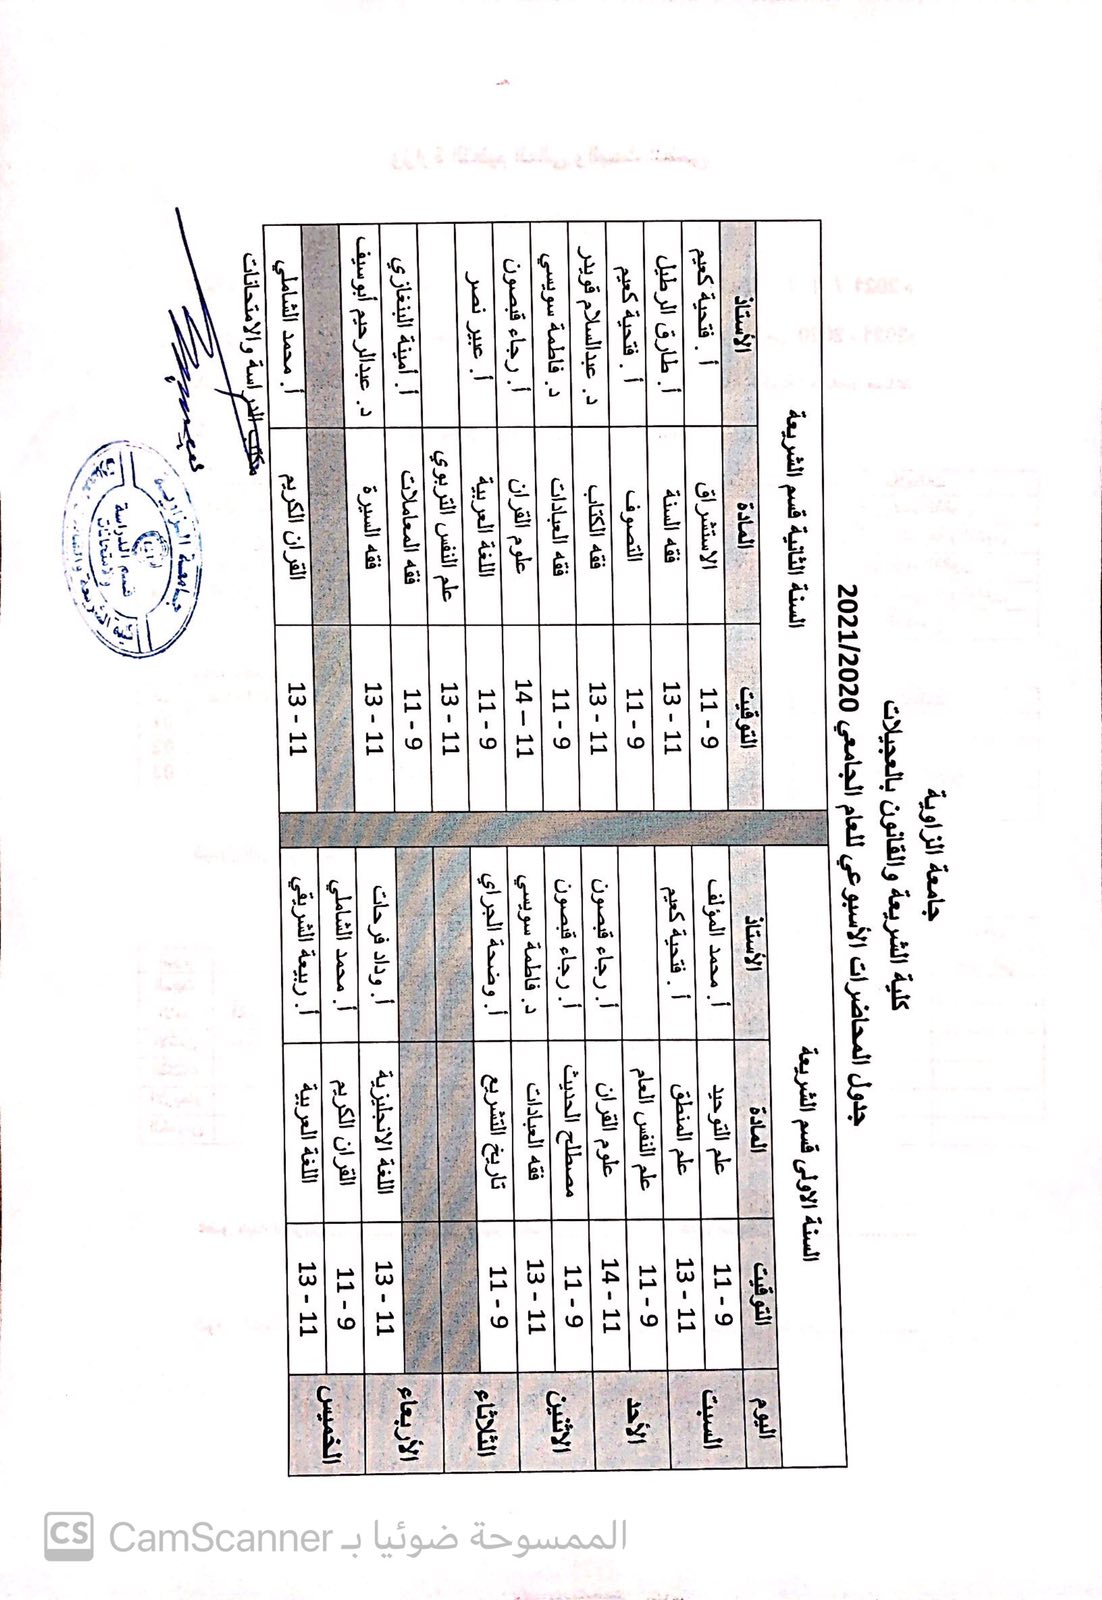 جامعة الزاوية
كلية الشريعة والقانون بالعجيلات
جدول المحاضرات الأسبوعي للعام الجامعي 2021/2020
السنة الاولى قسم الشريعة السنة الثانية قسم الشريعة
اليوم التوقيت المادة الأستاذ التوقيت المادة الأستاذ
السبت 9 - 11 علم التوحيد أ. محمد المؤلف 9 - 11 الاستشراق أ. فتحية كعيم
11 - 13 علم المنطق أ. فتحية كعيم 11 - 13 فقه السنة أ. طارق الرطيل
الأحد 9 - 11 علم النفس العام 9 - 11 التصوف أ. فتحية كعيم
11 - 14 علوم القران أ. رجاء قيصون 11 - 13 فقه الكتاب د. عبدالسلام قويدر
الاثنين 9 - 11 مصطلح الحديث أ. رجاء قيصون 9 - 11 فقه العبادات د. فاطمة سويسي
11 - 13 فقه العبادات د. فاطمة سويسي 11 – 14 علوم القران أ. رجاء قيصون
الثلاثاء 9 - 11 تاريخ التشريع أ. وضحة الجراي 9 - 11 اللغة العربية أ. عبير نصر
11 - 13 علم النفس التربوي
الأربعاء 9 - 11 فقه المعاملات أ. أمينة البنغازي
11 - 13 اللغة الانجليزية أ. وداد فرحات 11 - 13 فقه السيرة د. عبدالرحيم أبوسيف
الخميس 9 - 11 القران الكريم أ. محمد الشاملي
11 - 13 اللغة العربية أ. ربيعة الشريقي 11 - 13 القران الكريم أ. محمد الشاملي
مكتب الدراسة والامتحانات
جامعة الزاوية
قسم الدراسة
والامتحانات
CS CamScanner الممسوحة ضوئيا بـ